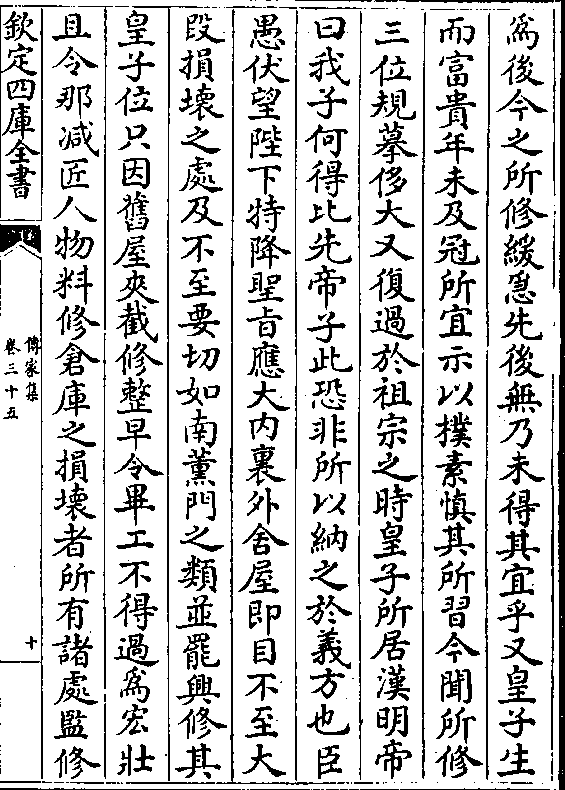 爲後今之所修緩急先後無乃未得其宜乎又皇子生
而富貴年未及冠所宜示以樸素慎其所習今聞所修
三位規摹侈大又復過於祖宗之時皇子所居漢明帝
曰我子何得比先帝子此恐非所以納之於義方也臣
愚伏望陛下特降聖旨應大内裏外舍屋即目不至大
段損壊之處及不至要切如南薫門之類並罷興修其
皇子位只因舊屋夾截修整早令畢工不得過爲宏壯
且令那减匠人物料修倉庫之損壊者所有諸處監修
欽定四庫全書
傳家集
卷三十五
十